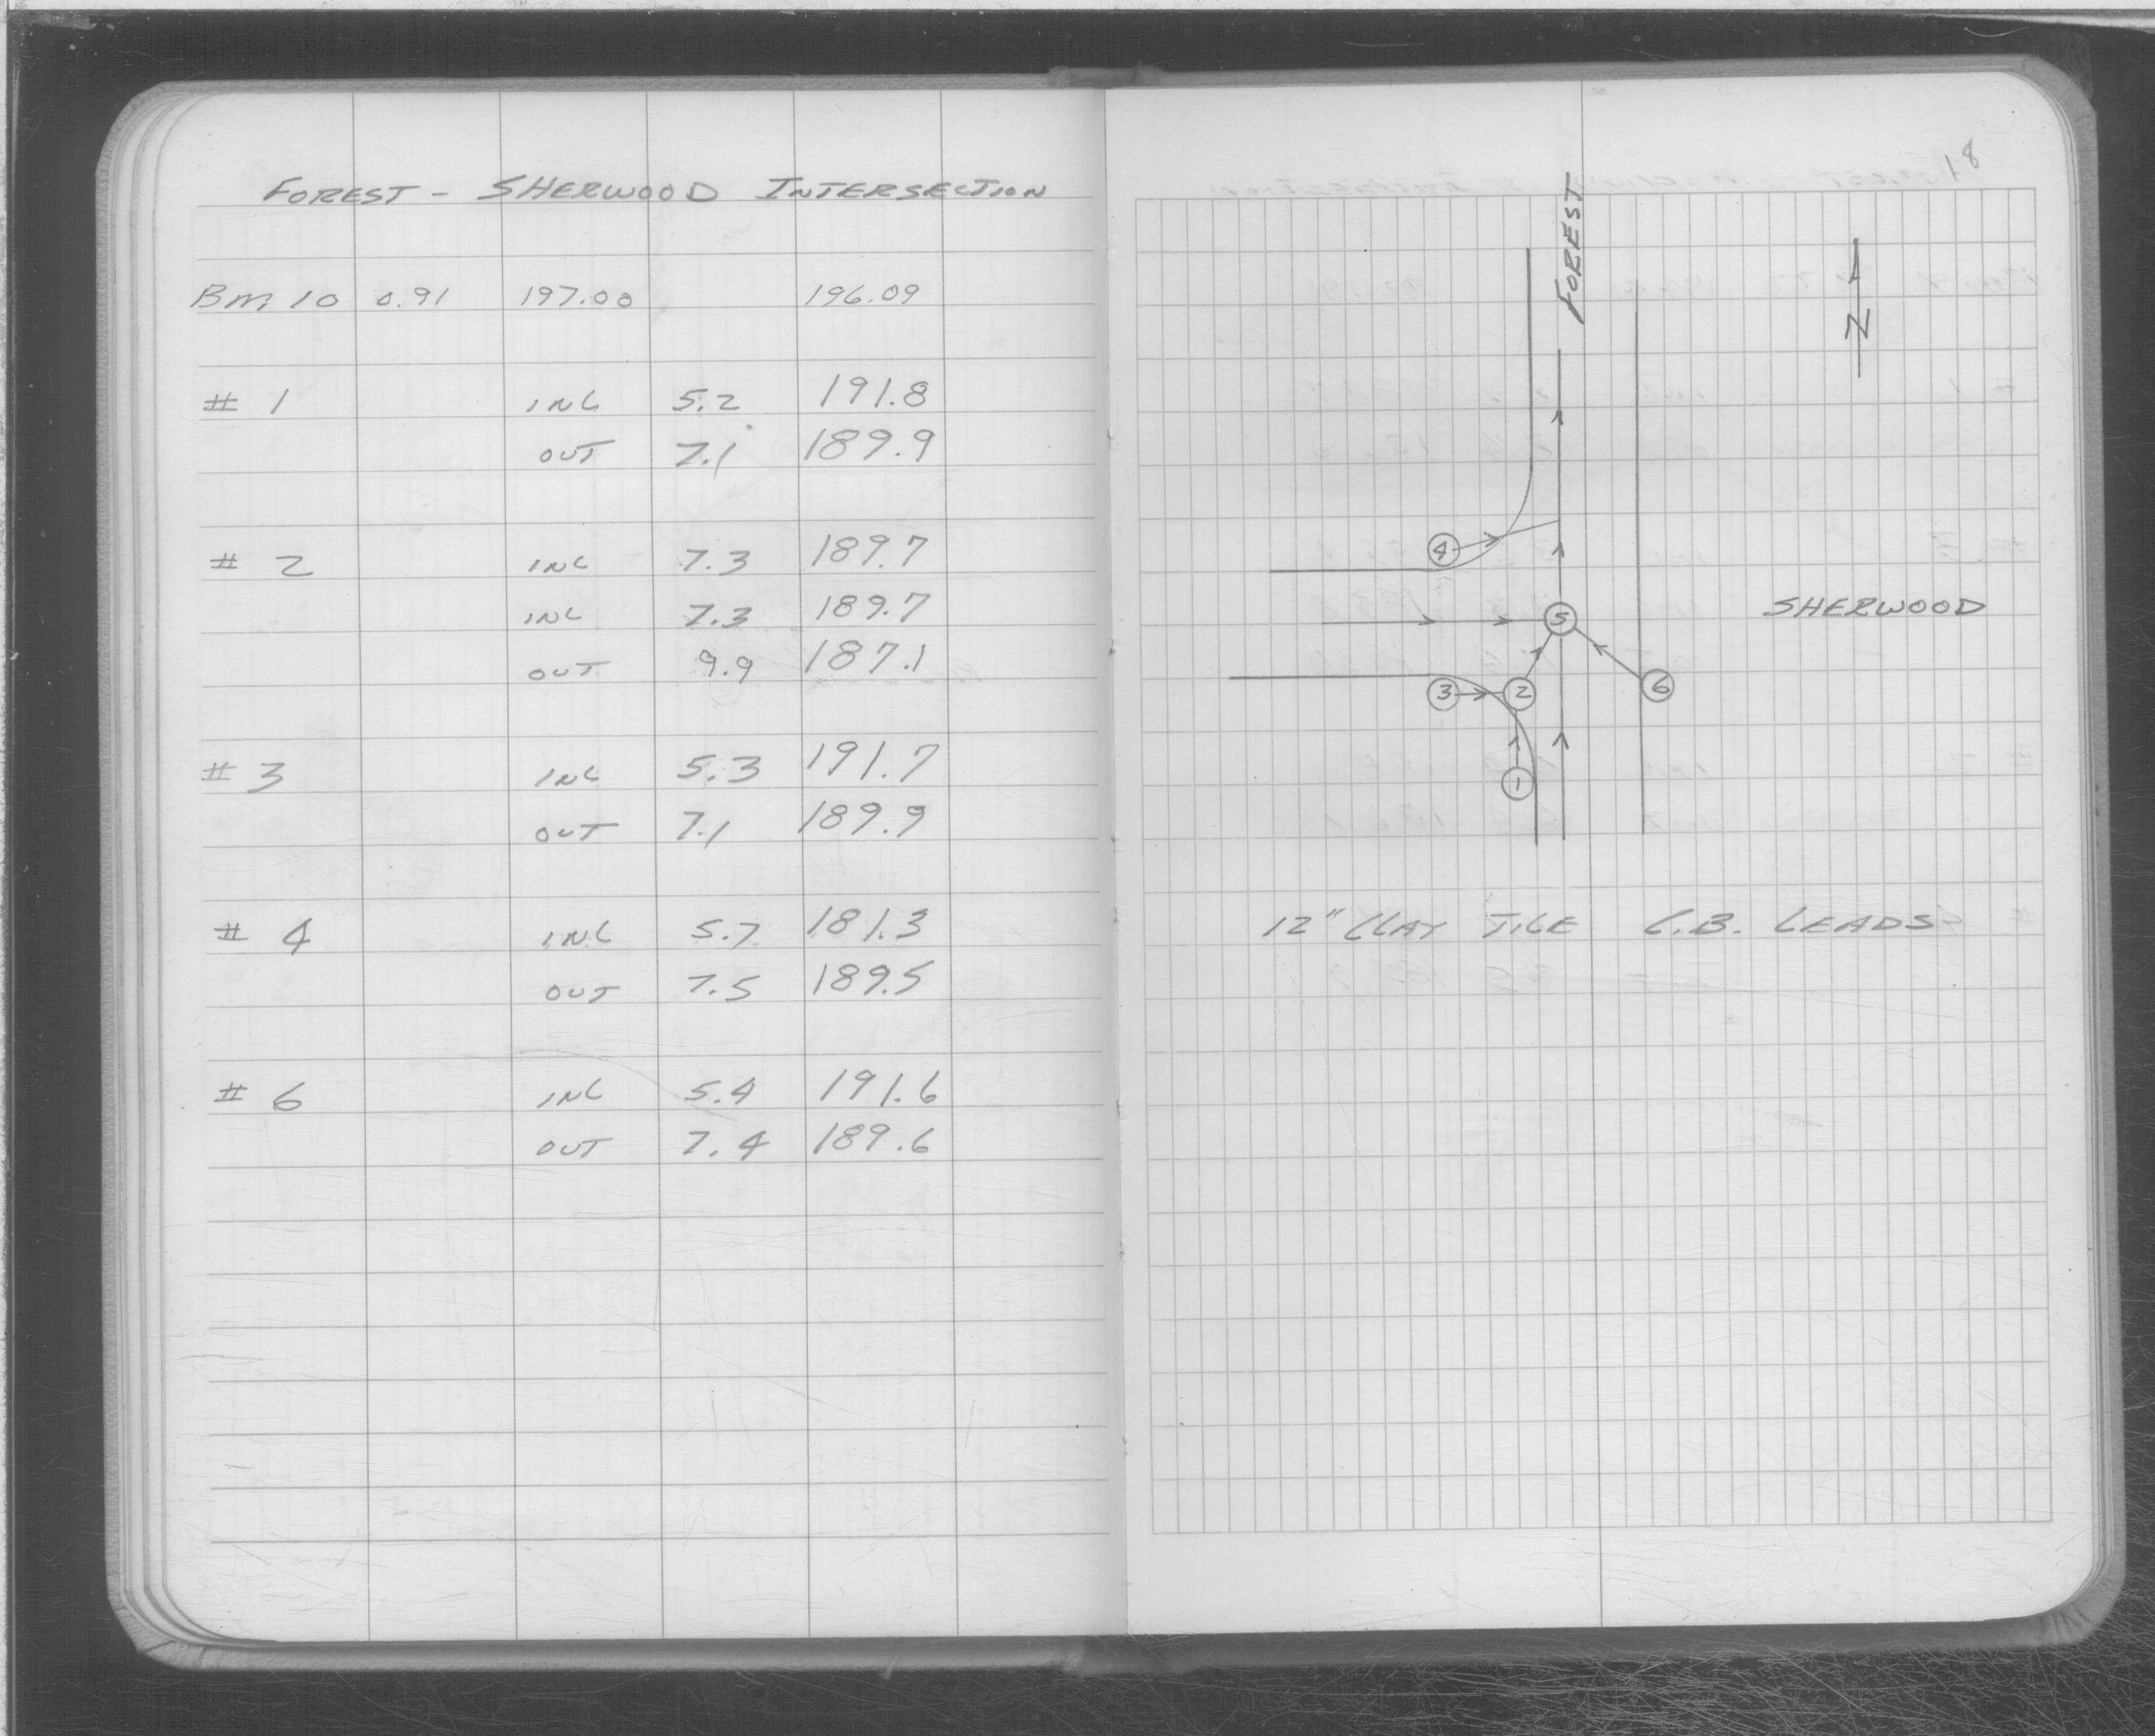 FOREST - SHERWOOD INTERSECTION
BM 10 0.91 197.00 196.09
# 1 INC 5.2 191.8
OUT 7.1 189.9
# 2 INC 7.3 189.7
INC 7.3 189.7
OUT 9.9 187.1
# 3 INC 5.3 191.7
OUT 7.1 189.9
# 4 INC 5.7 181.3
OUT 7.5 189.5
# 6 INC 5.4 191.6
OUT 7.4 189.6
18
FOREST
N
4
5
SHERWOOD
3 2 6
1
12" CLAY TILE C.B. LEADS